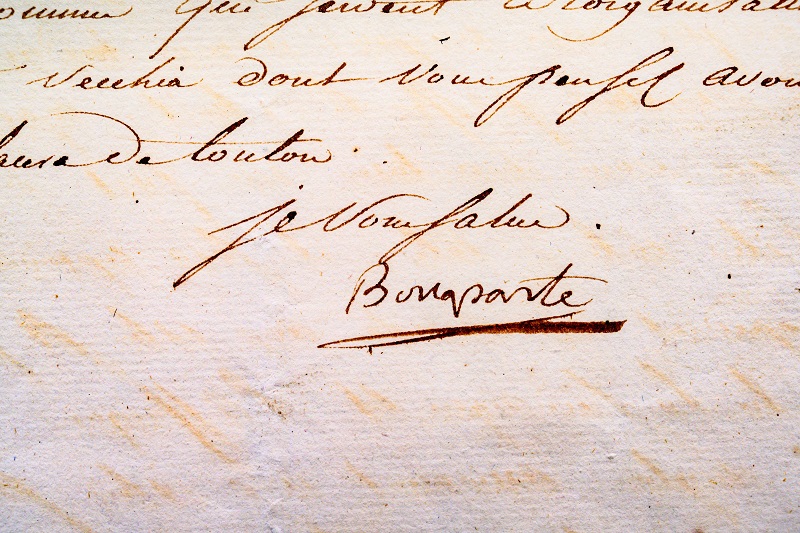 que servent
Vecchia dont vous pensez avou
de toulon.
je vous salue.
Bonaparte